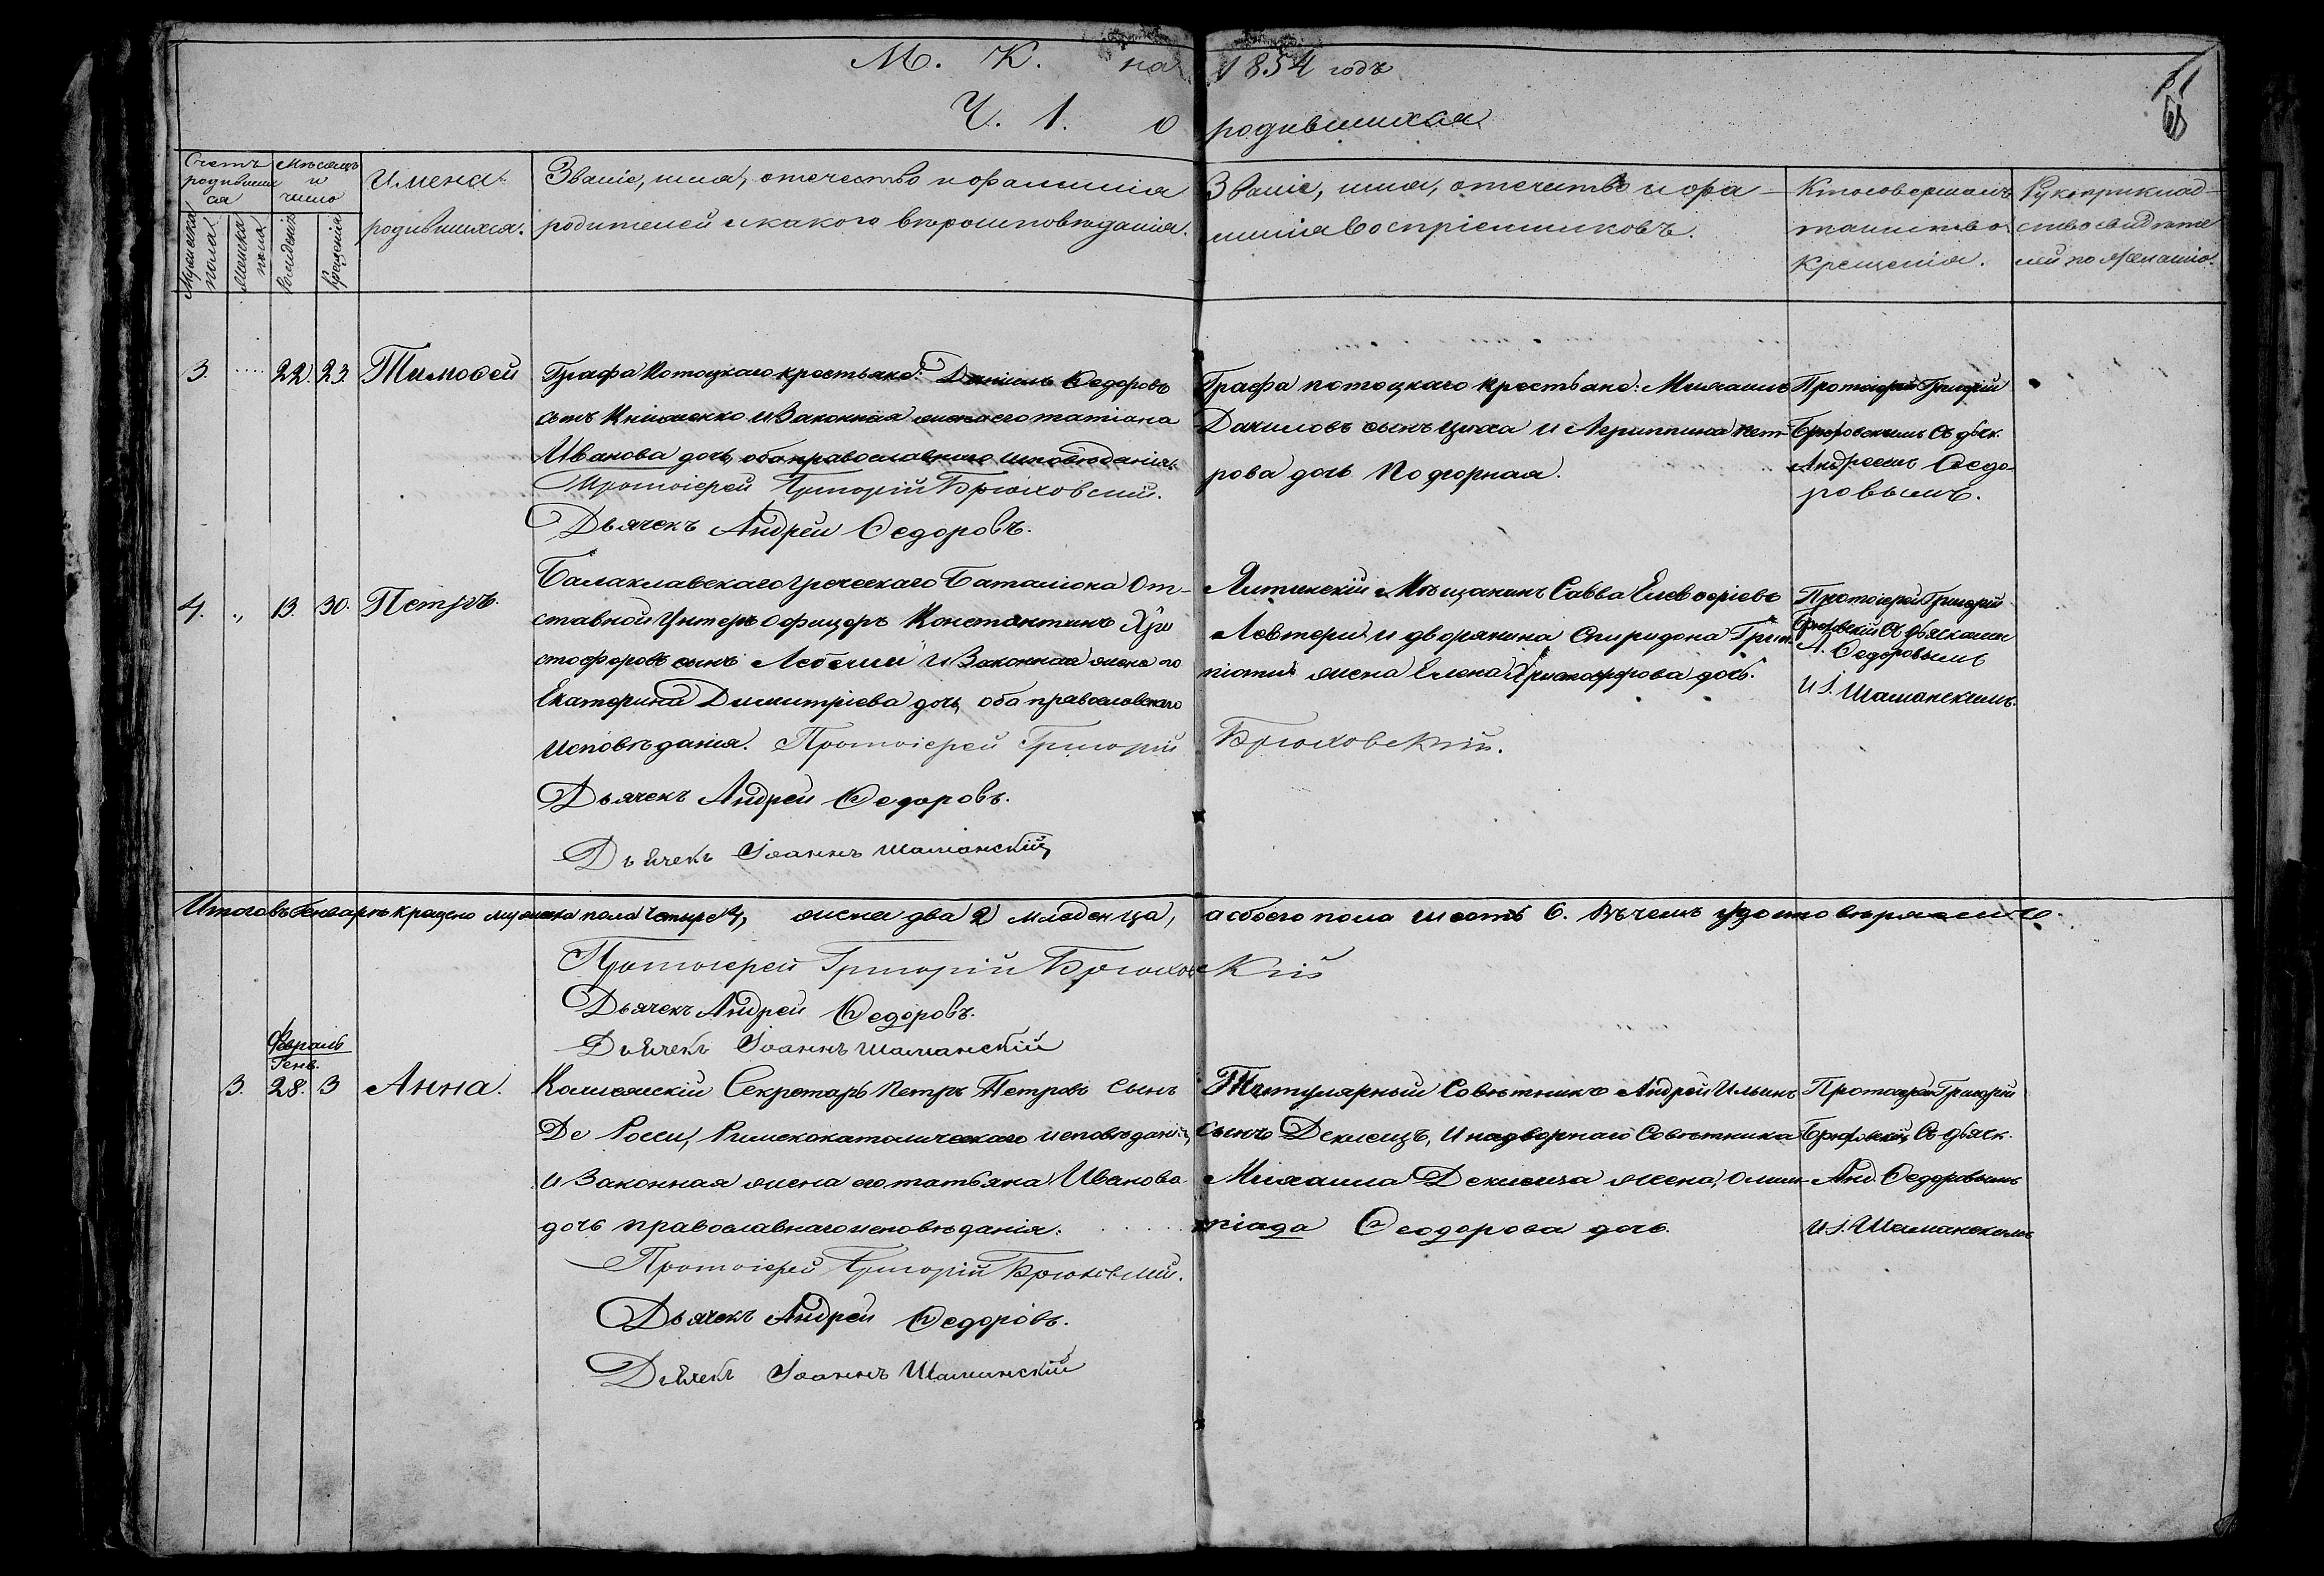 М. К. на 1854 годъ
Ч. 1. о родившихся
Счетъ родившихся
Мѣсяцъ и число
Мужеска пола.
Женска пола
Рожденія
Крещенія
Имена родившихся.
Званіе, имя, отечество и фамилія
родителей и какого вѣроисповѣданія.
Званіе, имя, отечество и фа-
милія воспріемниковъ.
Кто совершалъ
таинство
крещенія.
Рукоприклад-
ство свидѣте
лей по желанію.
3. 22. 23. Тимоѳей
Графа Потоцкаго крестьяне: Даніилъ Ѳедоровъ
сынъ Книженко и Законная жена его татіана
Иванова дочь, оба православнаго исповѣданія.
Протоіерей Григорій Брюховскій.
Дьячекъ Андрей Ѳедоровъ.
Графа потоцкаго крестьяне: Михаилъ
Даниловъ сынъ Цыха и Агриппина пет-
рова дочь Подфорная.
Протоіерей Григорій
Брюховскимъ Съ дьяч.
Андреемъ Ѳедо-
ровымъ.
4. „ 13. 30. Петръ.
Балаклавскаго греческаго Баталіона От-
ставной Унтеръ офицеръ Константинъ Хри
стофоровъ сынъ Лебечли и Законная жена го
Екатерина Димитріева дочь, оба православнаго
исповѣданія. Протоіерей Григорій Брюховскій.
Дьячекъ Андрей Ѳедоровъ.
Дьячекъ Іоаннъ Шаманскій
Ялтинскій Мѣщанинъ Савва Елевѳеріевъ
Левтери и дворянина Спиридона
жена Елена Христофорова дочь.
Протоіерей Григорій
Брюховскій Съ дьячками
А. Ѳедоровымъ
и І. Шаманскимъ.
Итого въ Генварѣ крещено мужеска пола четыре 4, женска два 2 младенца, а обоего пола шесть 6. Въ чемъ удостовѣряемъ.
Протоіерей Григорій Брюховскій
Дьячекъ Андрей Ѳедоровъ.
Дьячекъ Іоаннъ Шаманскій
Февраль
Генв.
3. 28. 3 Анна.
Коллежскій Секретарь Петръ Петровъ Сынъ
Де Росси, Римскокатолическаго исповѣданія,
и Законная жена его татьяна Иванова
дочь православнаго исповѣданія.
Протоіерей Григорій Брюховскій.
Дьячекъ Андрей Ѳедоровъ.
Дьячекъ Іоаннъ Шаманскій
Титулярный Совѣтникъ Андрей Ильинъ
сынъ Деклецъ, и надворнаго Совѣтника
Михаила жена, Олим-
піада Ѳеодорова дочь.
Протоіерей Григорій
Брюховскій, Съ дьяч.
Анд. Ѳедоровымъ
и І. Шаманскимъ